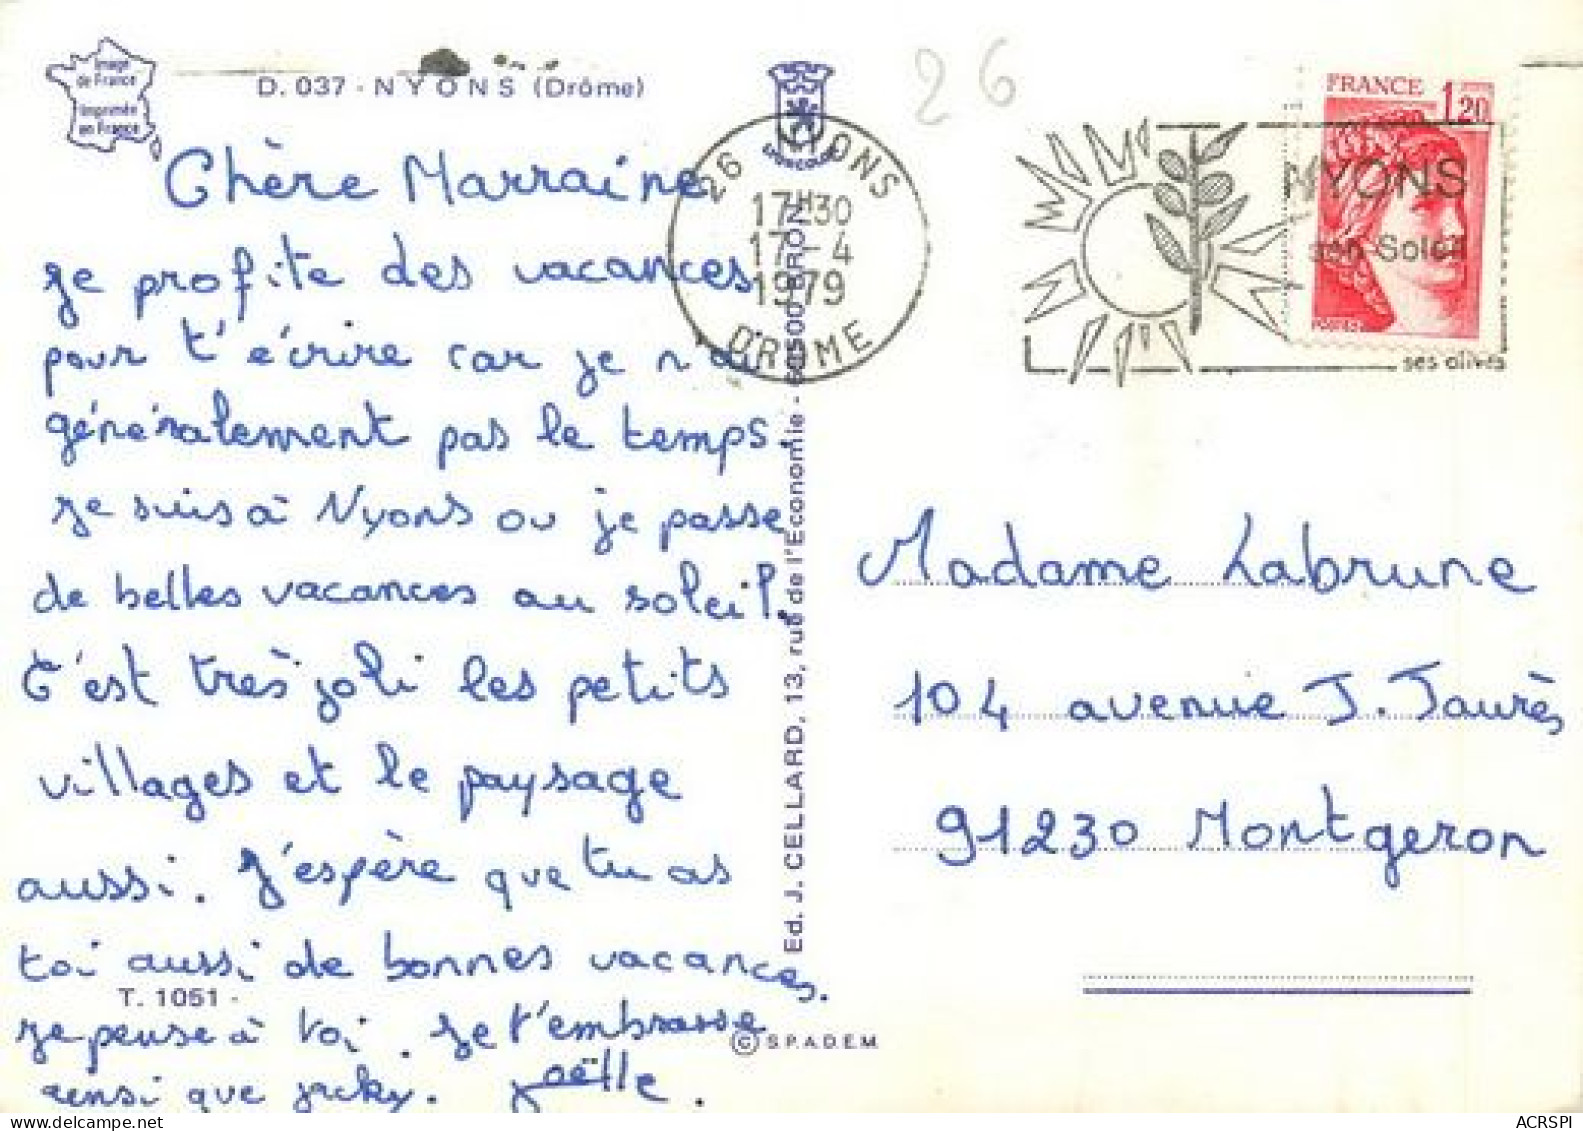 Image
de France
Imprimée
en France
D. 037 - NYONS (Drôme)
26
Chère Marraine
Je profite des vacances
pour t'écrire car je n'ai
généralement pas le temps.
Je suis à Nyons ou je passe
de belles vacances au soleil.
C'est très joli les petits
villages et le paysage
aussi. J'espère que tu as
toi aussi de bonnes vacances.
T. 1051 -
Je pense à toi. Je t'embrasse
ainsi que Jacky. Joëlle.
26 NYONS
17H30
17 - 4
1979
DROME
Ed. J. CELLARD, 13, rue de l'Economie - 69500 BRON
© S.P.A.D.E.M.
FRANCE 1,20
NYONS
son Soleil
ses olives
Madame Labrune
104 avenue J. Jaurès
91230 Montgeron
ACRSPI